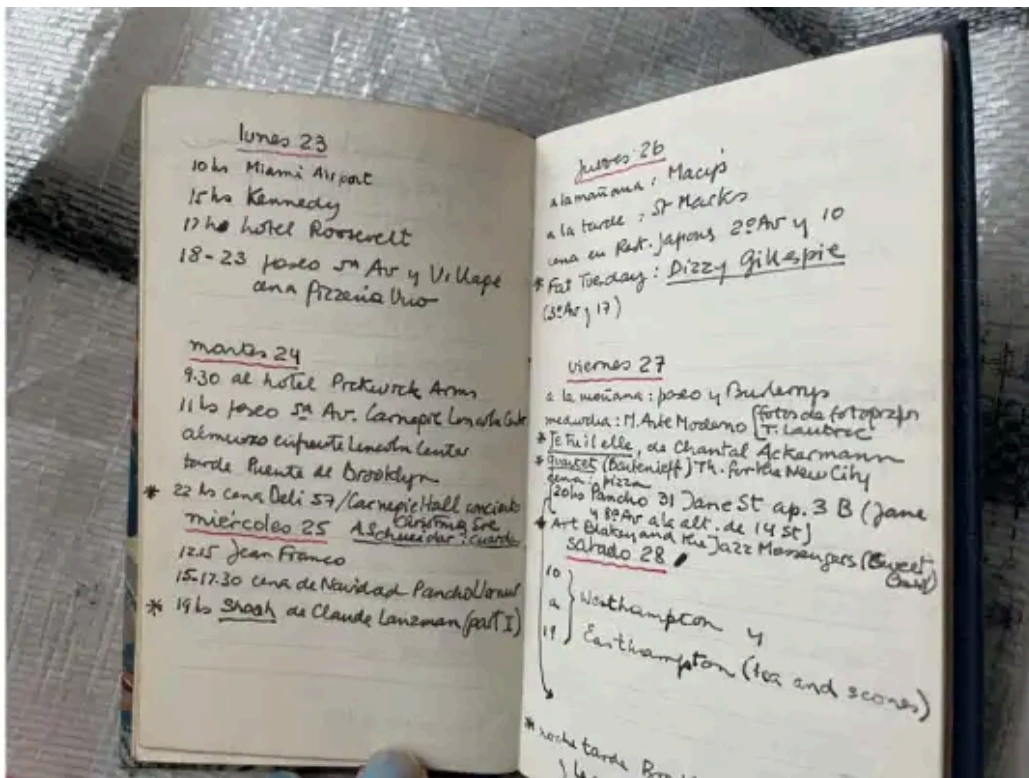 lunes 23
10 hs Miami Airport
15 hs Kennedy
17 hs hotel Roosevelt
18-23 paseo 5ª Av y Village
cena Pizzeria Uno
martes 24
9.30 al hotel Pickwick Arms
11 hs paseo 5ª Av. Carnegie Lincoln
almuerzo enfrente Lincoln Center
tarde Puente de Brooklyn
* 22 hs cena Deli 57/Carnegie Hall concierto
Christmas Eve
A. Schneider:
miércoles 25
12.15 Jean Franco
15-17.30 cena de Navidad Pancho
* 19 hs Shoah de Claude Lanzman (part I)
jueves 26
a la mañana: Macy's
a la tarde: St Marks
cena en Rest. Japonés 2ª Av y 10
* Fat Tuesday: Dizzy Gillespie
(3ª Av y 17)
viernes 27
a la mañana: paseo y
mediodia: M. Arte Moderno [fotos de fotógrafos
T. Lautrec
* Je tu il elle, de Chantal Ackermann
* quartet (Bartenieff) Th. for the New City
cena: pizza
[20 hs Pancho 31 Jane St ap. 3 B (Jane
y 8ª Av a la alt. de 14 St]
* Art Blakey and the Jazz Messengers (Sweet
Basil)
sabado 28
10
a
19
Westhampton y
Easthampton (tea and scones)
* noche tarde